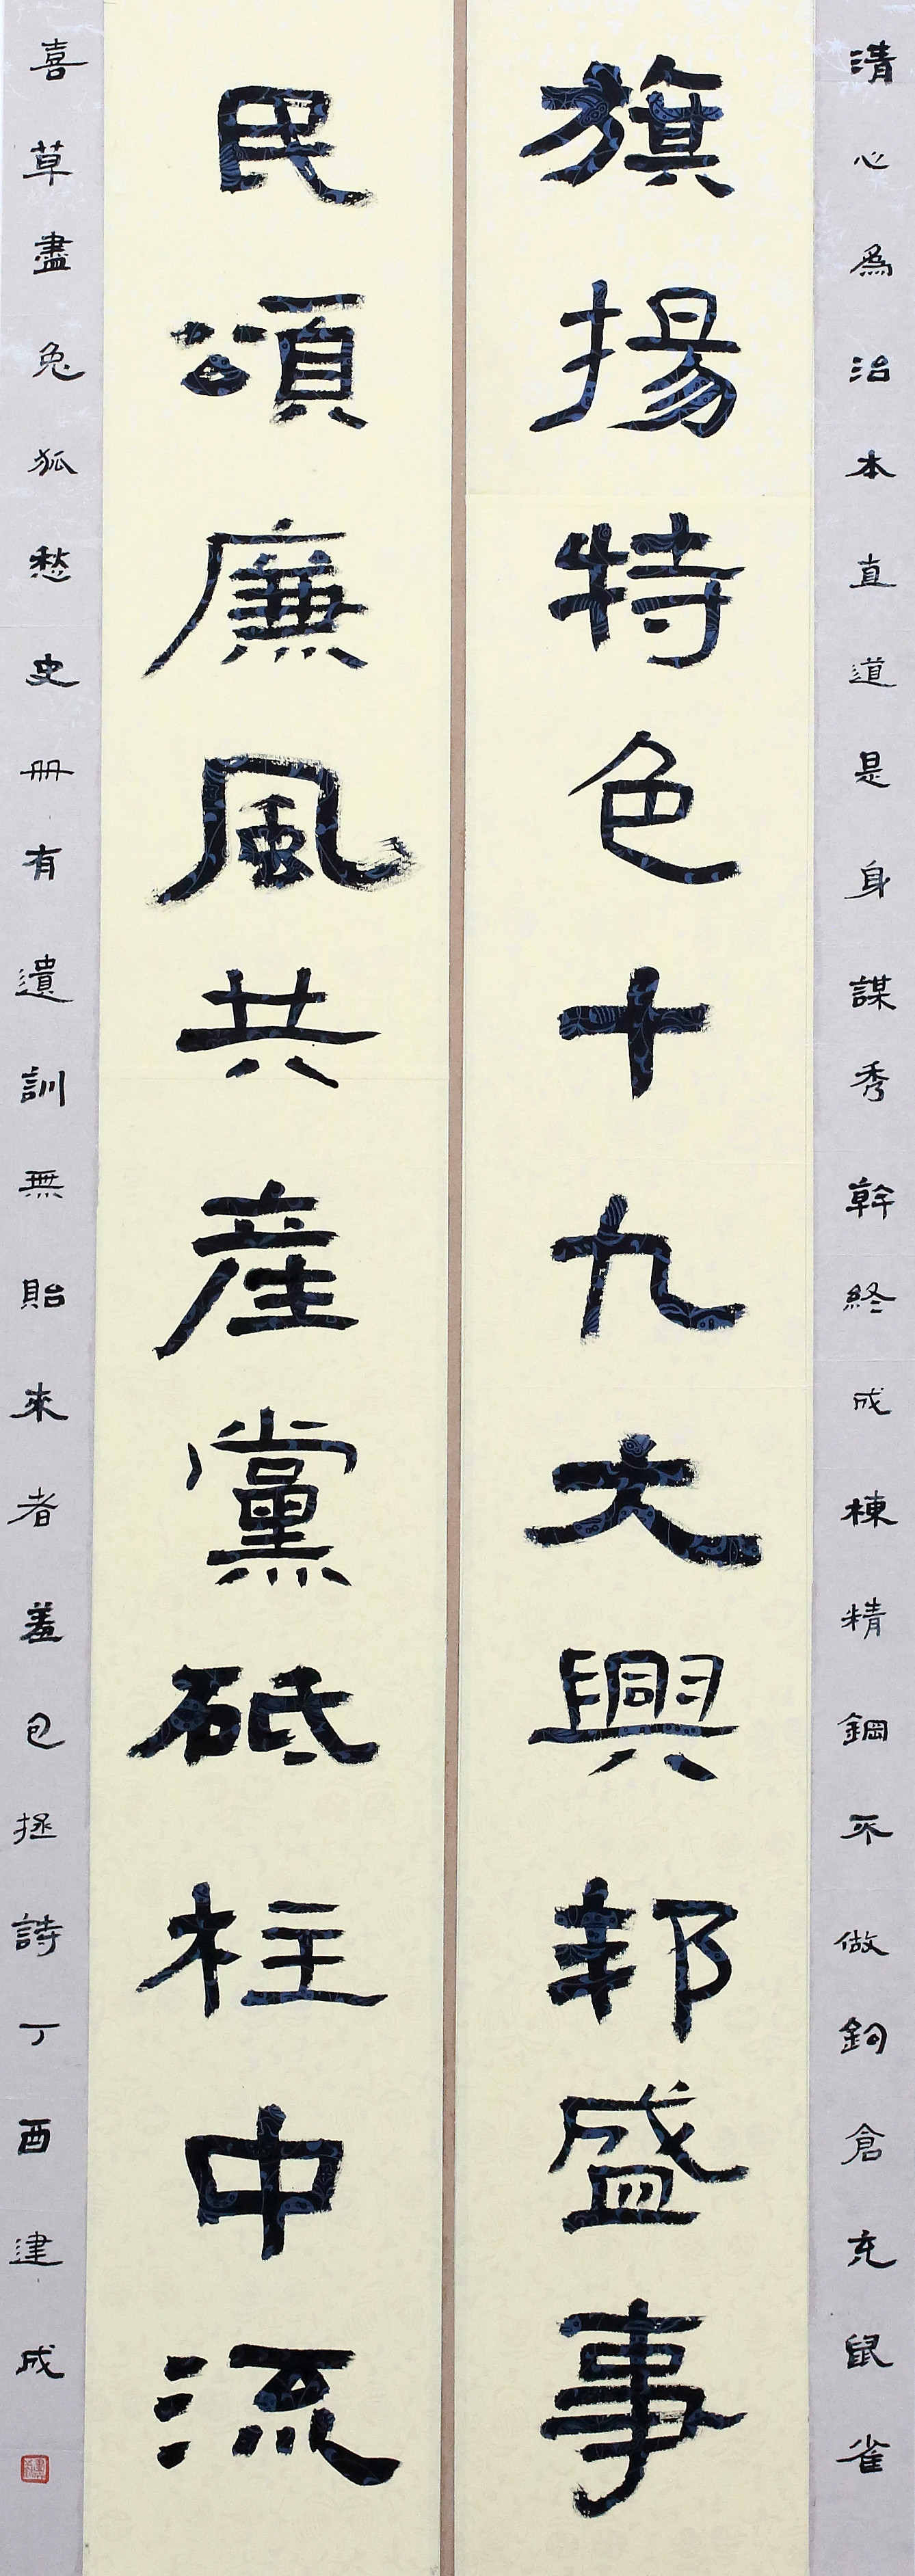 清心為治本直道是身謀秀幹終成棟精鋼不做鉤倉充鼠雀
旗揚特色十九大興邦盛事
民頌廉風共産黨砥柱中流
喜草盡兔狐愁史冊有遺訓無貽來者羞包拯詩丁酉建成